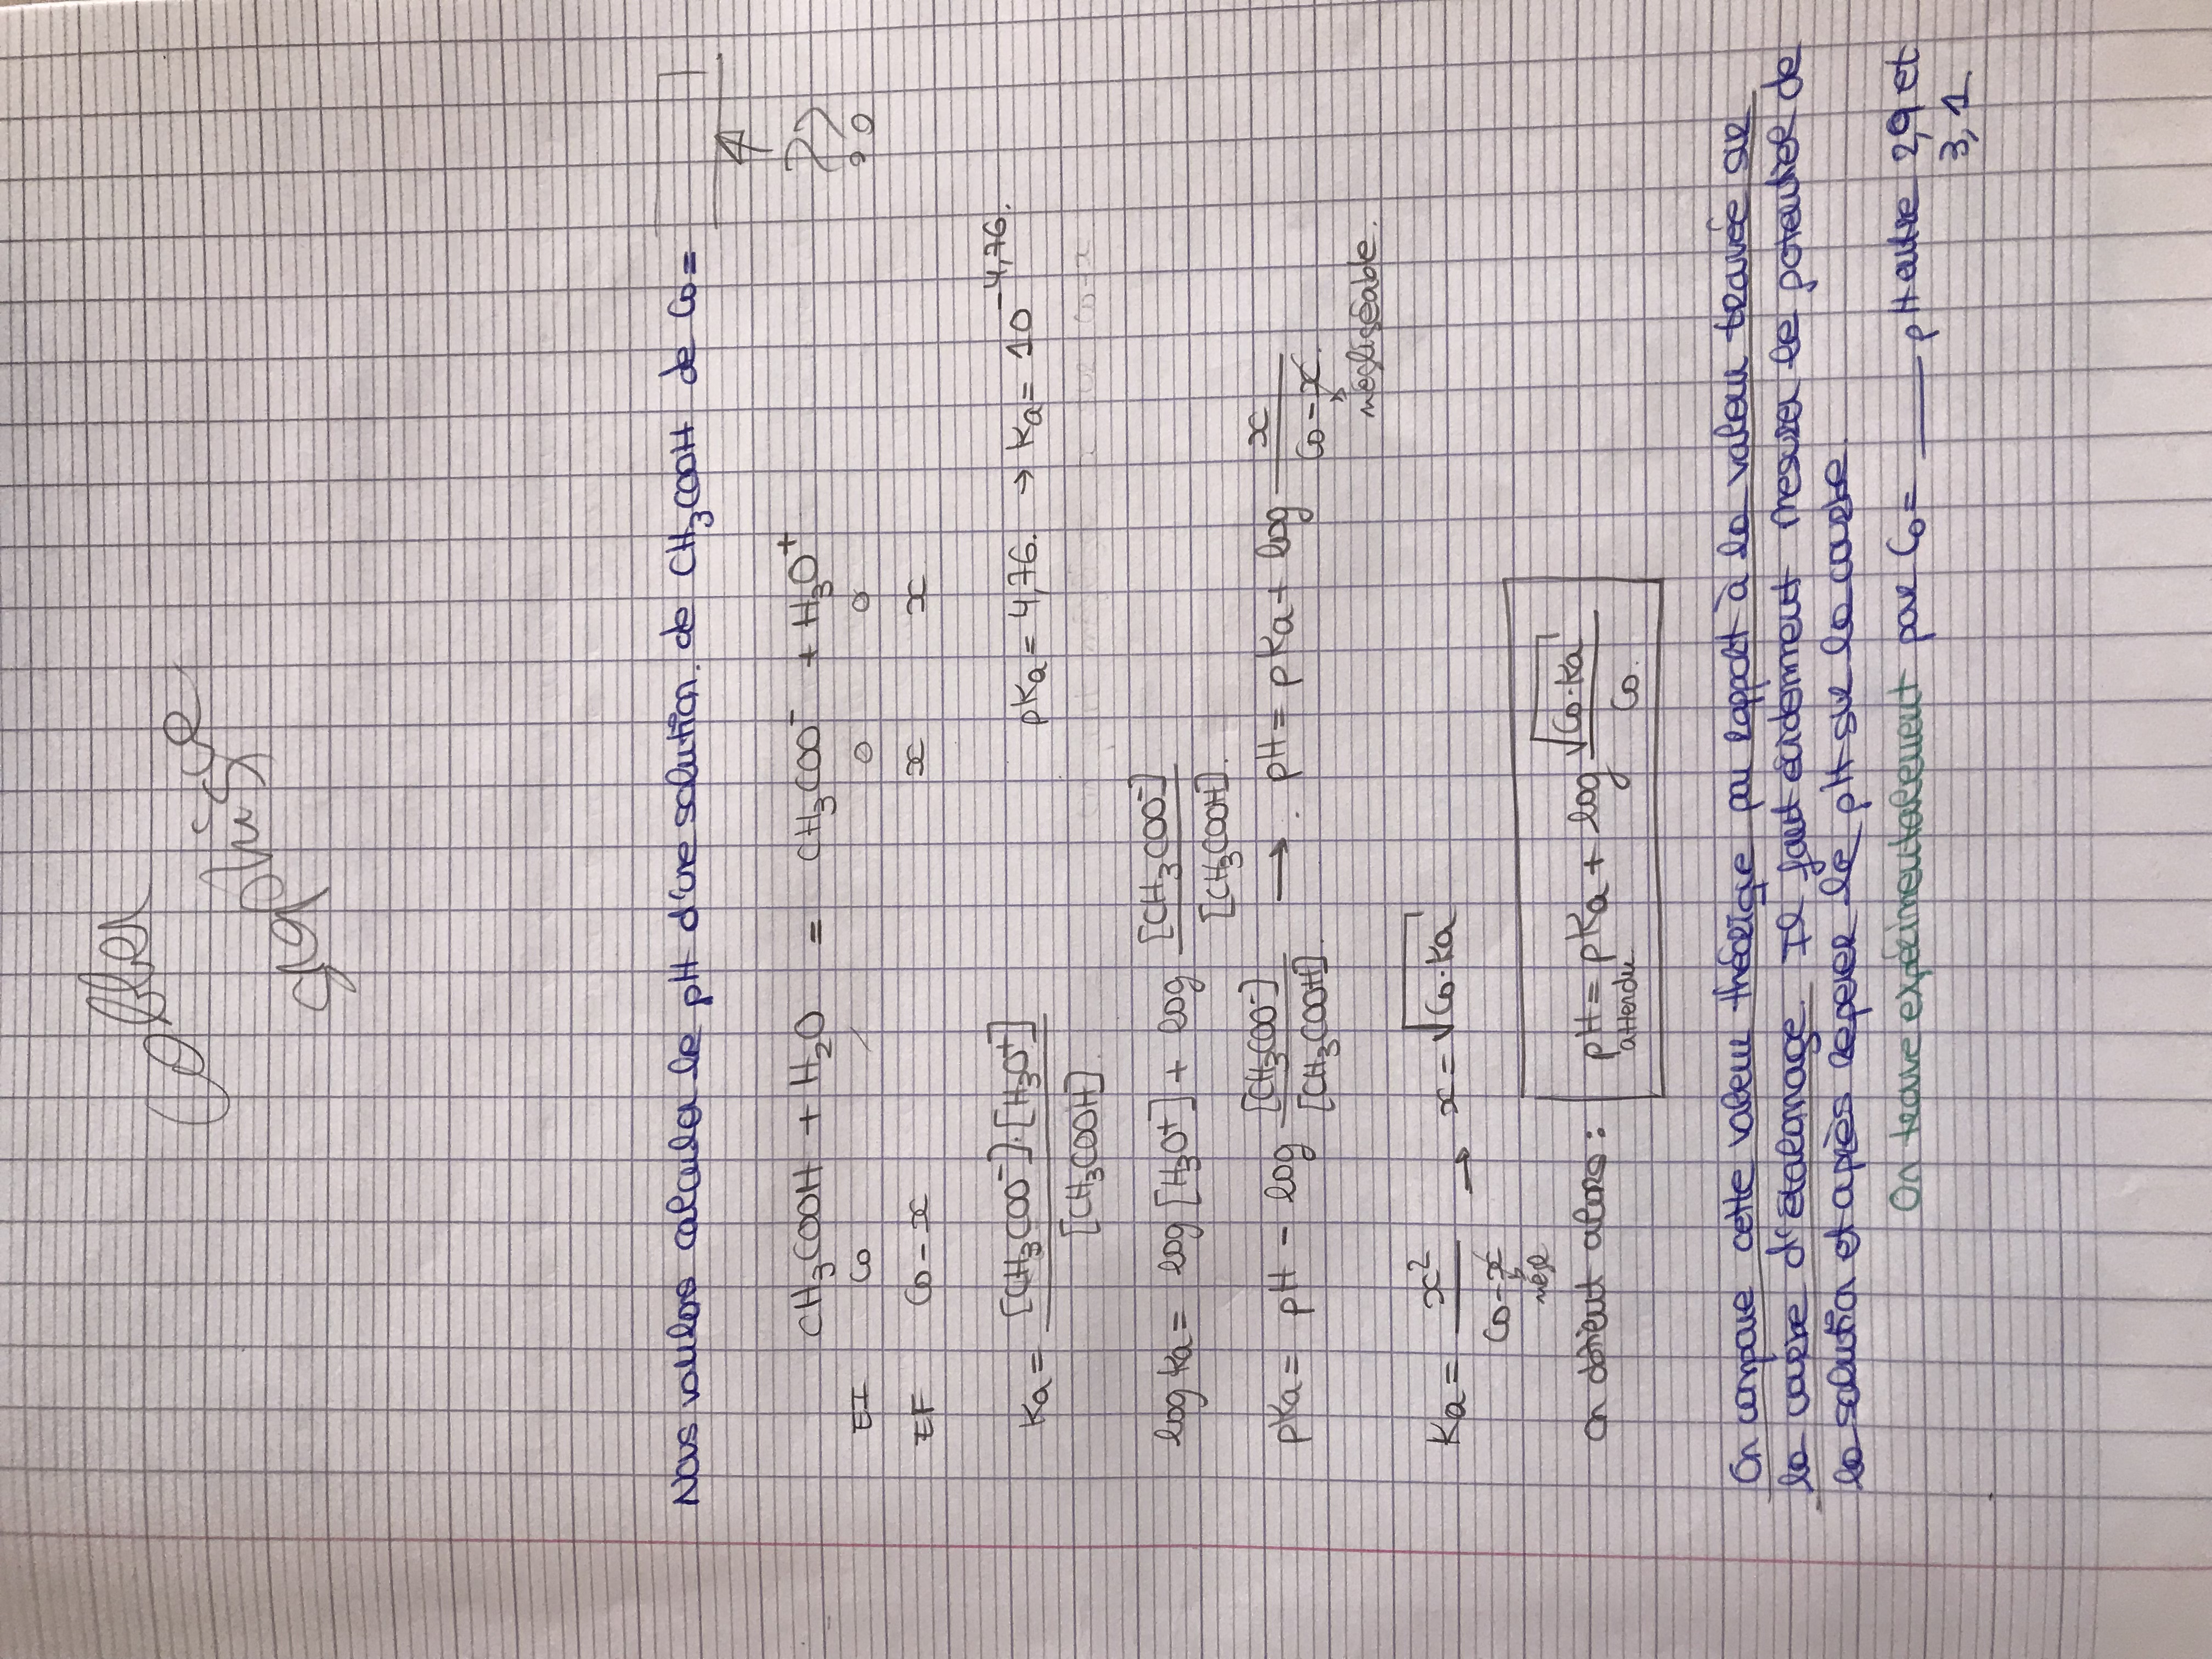 Coller
graphique
Nous voulons calculer le pH d'une solution. de CH₃COOH de Co =
CH₃COOH + H₂O = CH₃COO⁻ + H₃O⁺
??
EI Co / 0 0
EF Co - x x x
Ka = [CH₃COO⁻]·[H₃O⁺] / [CH₃COOH]. pKa = 4,76. → Ka = 10^-4,76.
log Ka = log [H₃O⁺] + log [CH₃COO⁻] / [CH₃COOH].
pKa = pH - log [CH₃COO⁻] / [CH₃COOH]. → . pH = pKa + log x / Co - x.
négligéable.
Ka = x² / Co - x → x = √Co·Ka
négl
On obtient alors : pH = pKa + log √Co·Ka / Co.
attendu
On compare cette valeur théorique par rapport à la valeur trouvée sur
la courbe d'étalonnage. Il faut évidemment mesurer le potentiel de
la solution et après repérer le pH sur la courbe.
On trouve expérimentalement pour Co = ___ pH entre 2,9 et
3,1.